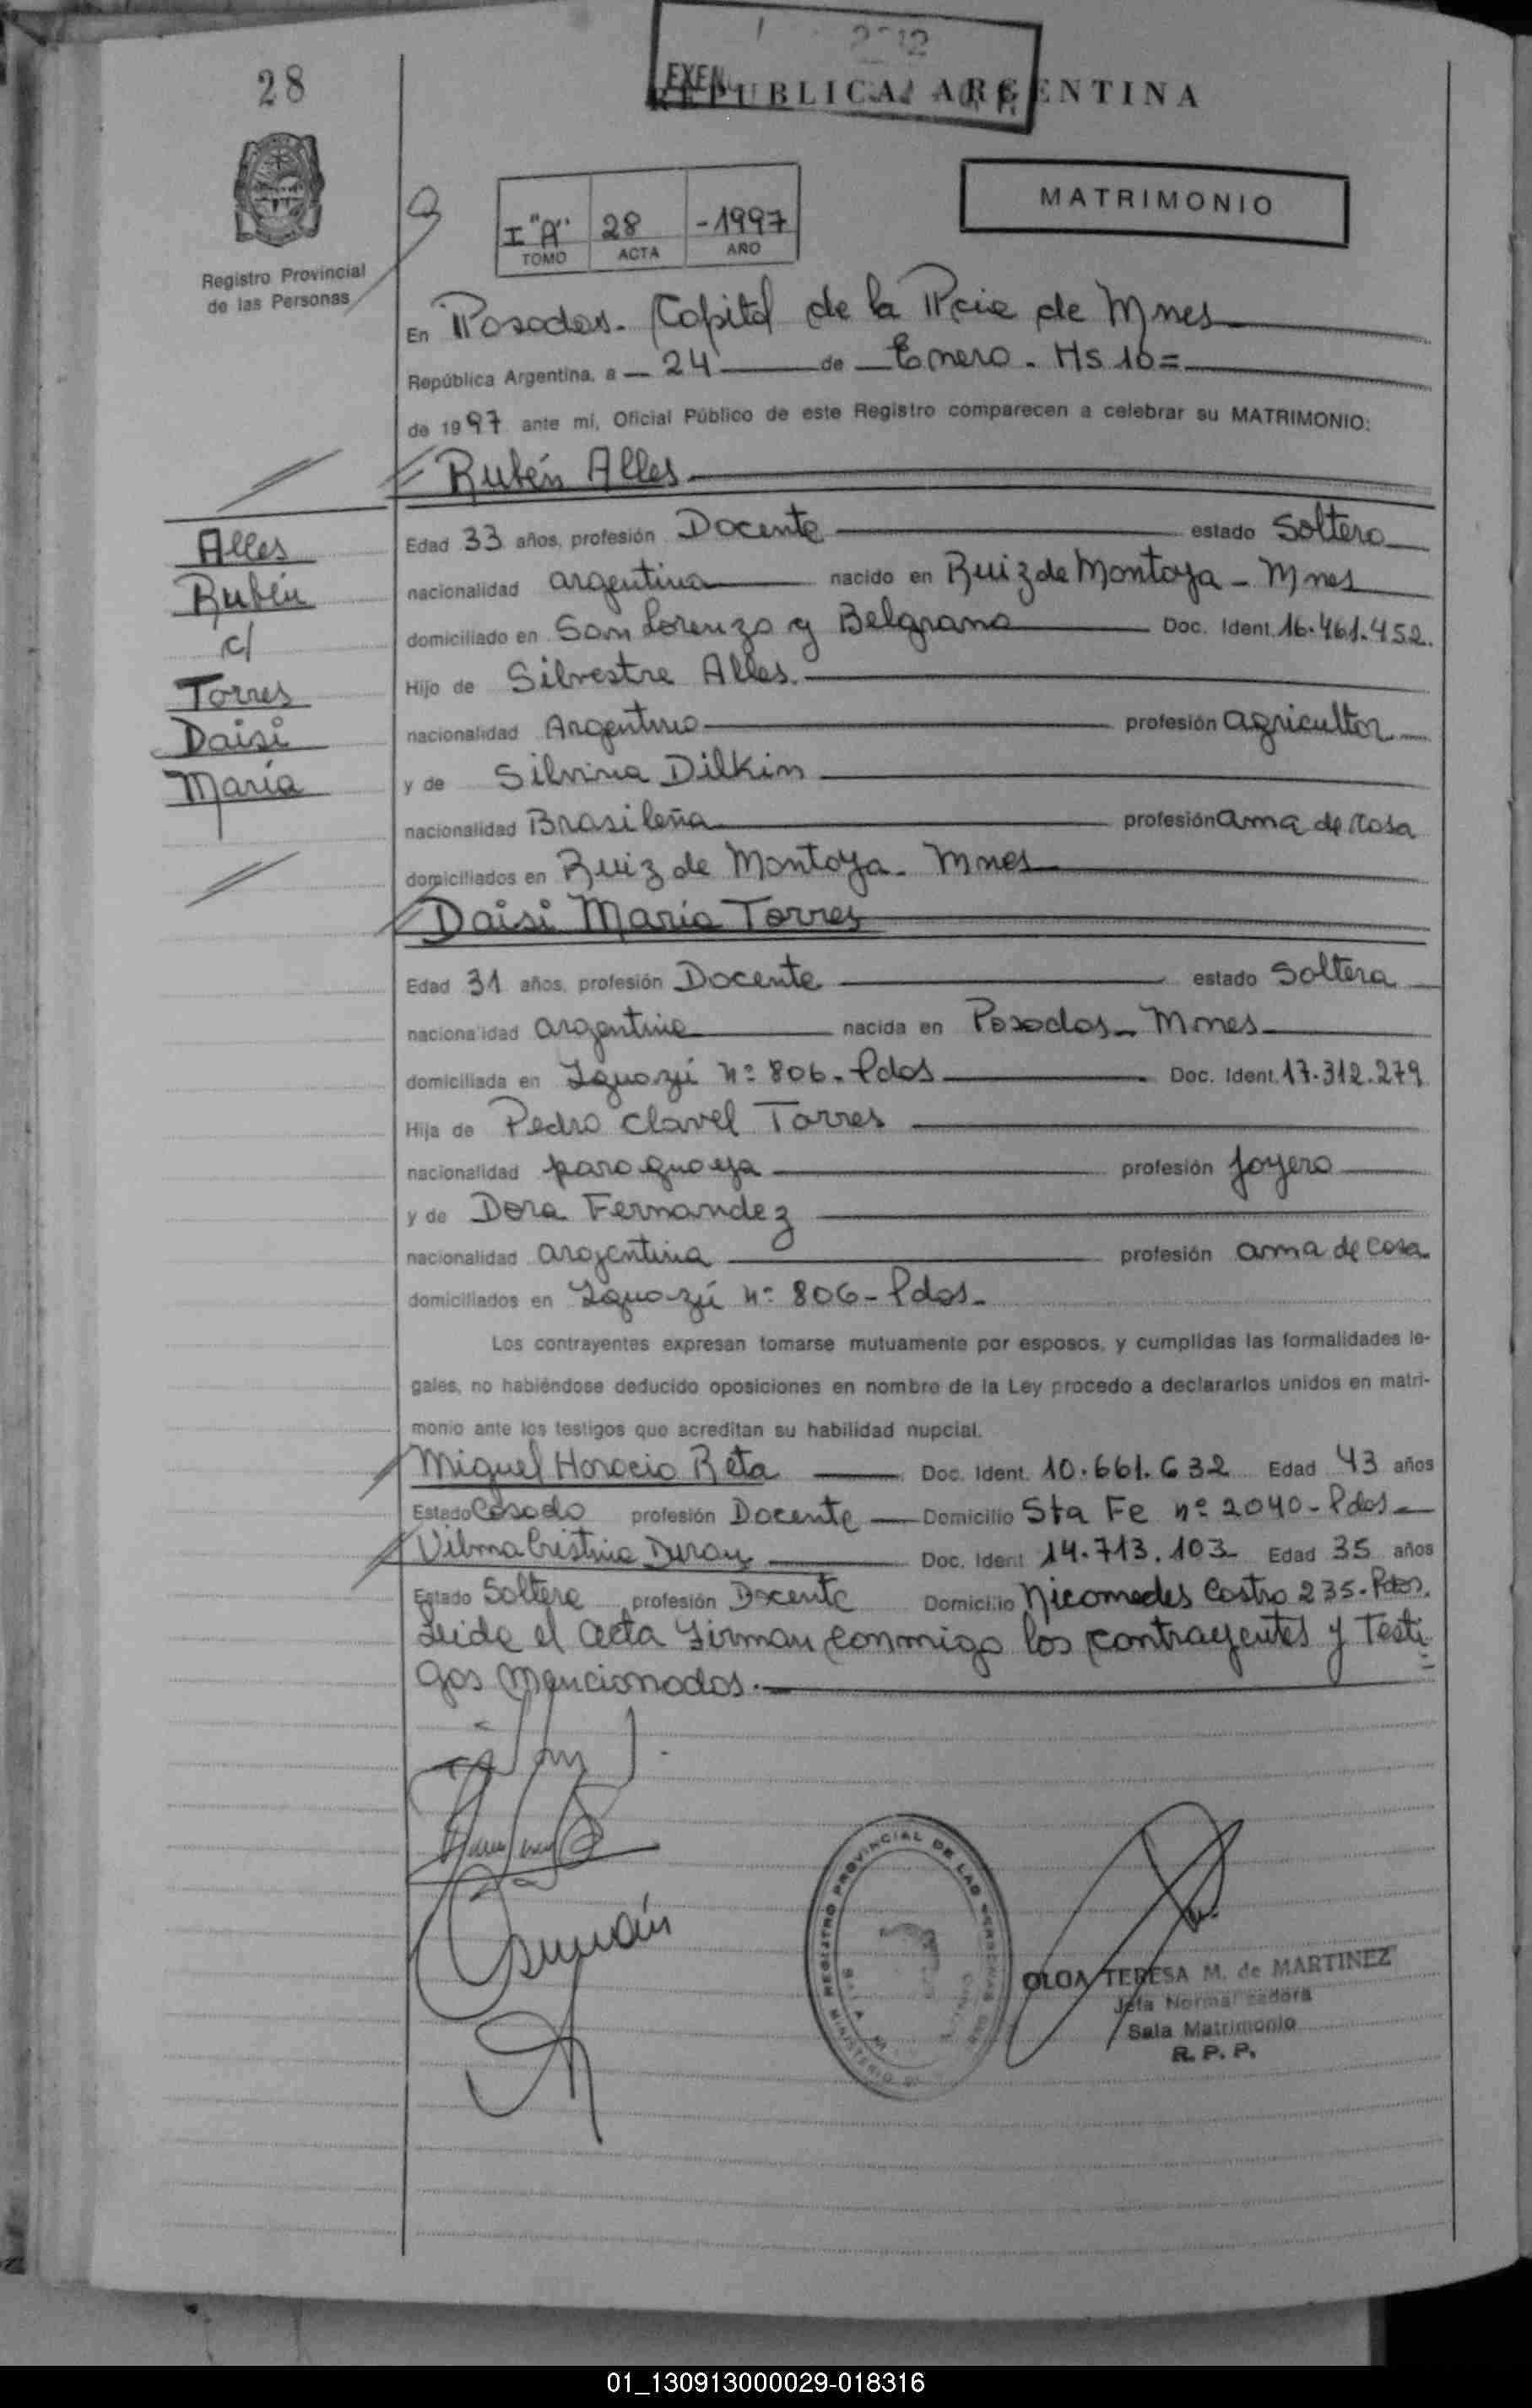 28
REPUBLICA ARGENTINA
EXEN
MATRIMONIO
I "A" 28 - 1997
TOMO ACTA AÑO
Registro Provincial
de las Personas
En Posadas. Capital de la Pcia de Mnes
República Argentina, a 24 de Enero. Hs 10=
de 1997 ante mi, Oficial Público de este Registro comparecen a celebrar su MATRIMONIO:
Rubén Alles
Edad 33 años, profesión Docente estado Soltero
nacionalidad argentina nacido en Ruiz de Montoya - Mnes
domiciliado en San Lorenzo y Belgrano Doc. Ident. 16.461.452.
Hijo de Silvestre Alles.
nacionalidad Argentino profesión agricultor
y de Silvina Dilkin
nacionalidad Brasileña profesión ama de casa
domiciliados en Ruiz de Montoya - Mnes
Alles
Rubén
c/
Torres
Daisi
María
Daisi María Torres
Edad 31 años, profesión Docente estado Soltera
nacionalidad argentina nacida en Posadas - Mnes
domiciliada en Iguazú nº 806 - Pdas Doc. Ident. 17.312.279
Hija de Pedro Clavel Torres
nacionalidad paraguaya profesión joyero
y de Dora Fernandez
nacionalidad argentina profesión ama de casa
domiciliados en Iguazú nº 806 - Pdas -
Los contrayentes expresan tomarse mutuamente por esposos, y cumplidas las formalidades le-
gales, no habiéndose deducido oposiciones en nombre de la Ley procedo a declararlos unidos en matri-
monio ante los testigos que acreditan su habilidad nupcial.
Miguel Horacio Reta Doc. Ident. 10.661.632 Edad 43 años
Estado Casado profesión Docente Domicilio Sta Fe nº 2040 - Pdas -
Vilma Cristina Duran Doc. Ident 14.713.103 Edad 35 años
Estado Soltera profesión Docente Domicilio Nicomedes Castro 235 - Pdas.
Leida el acta firman conmigo los contrayentes y testi=
gos mencionados.
REGISTRO PROVINCIAL DE LAS PERSONAS
OLGA TERESA M. de MARTINEZ
Jefa Normalizadora
Sala Matrimonio
R. P. P.
01_130913000029-018316